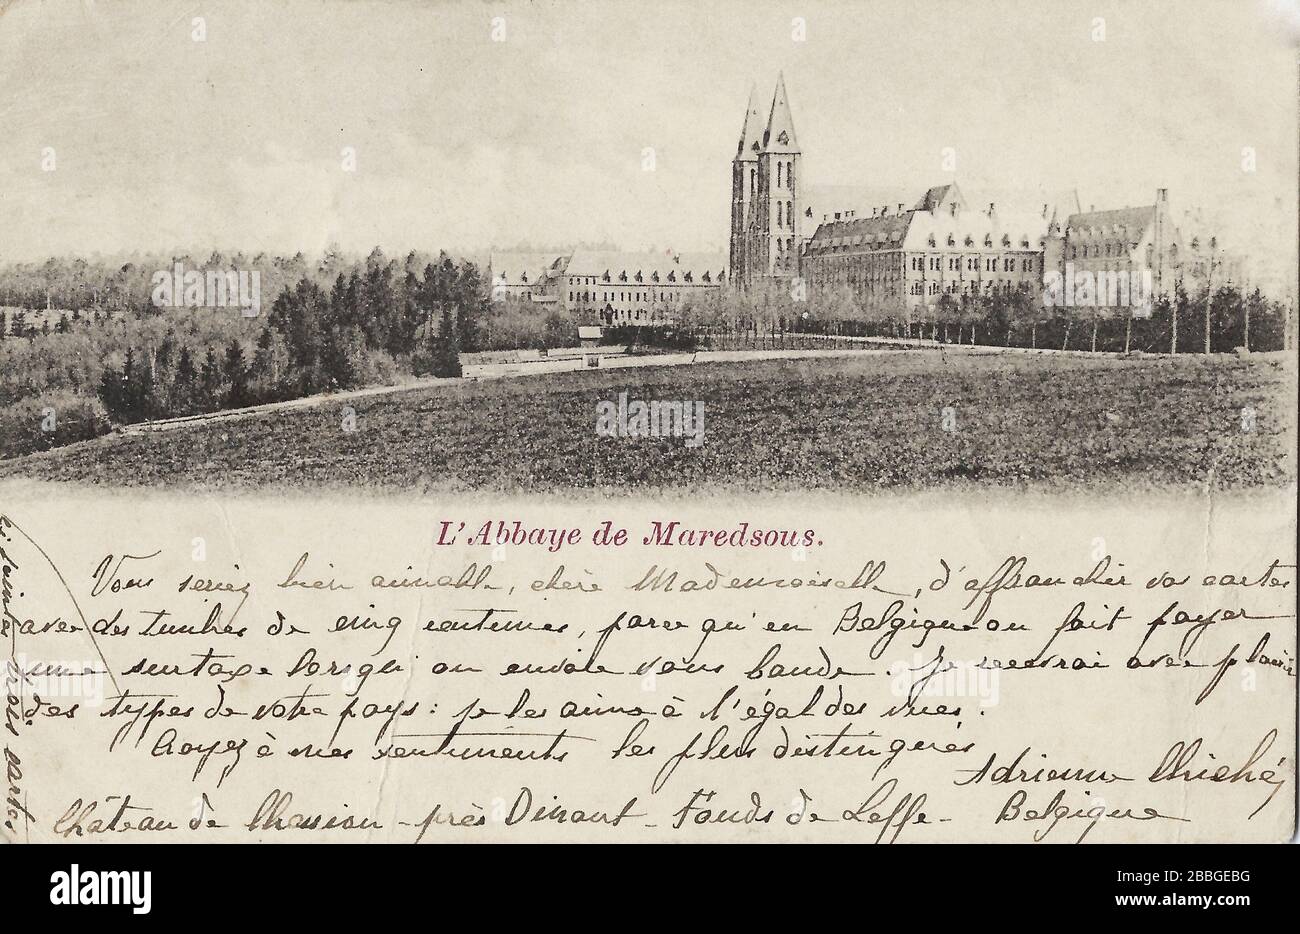 L'Abbaye de Maredsous.
Vous seriez bien aimable, chère Mademoiselle, d'affranchir vos cartes
avec des timbres de cinq centimes, parce qu'en Belgique on fait payer
une surtaxe lorsqu'on envoie sous bande. Je recevrai avec plaisir
des types de votre pays : je les aime à l'égal des vues.
Croyez à mes sentiments les plus distingués
Adrienne
Château de - près Dinant - Fonds de Leffe - Belgique
Ci joint trois cartes
a alamy
alamy
Image ID: 2BBGEBG
www.alamy.com